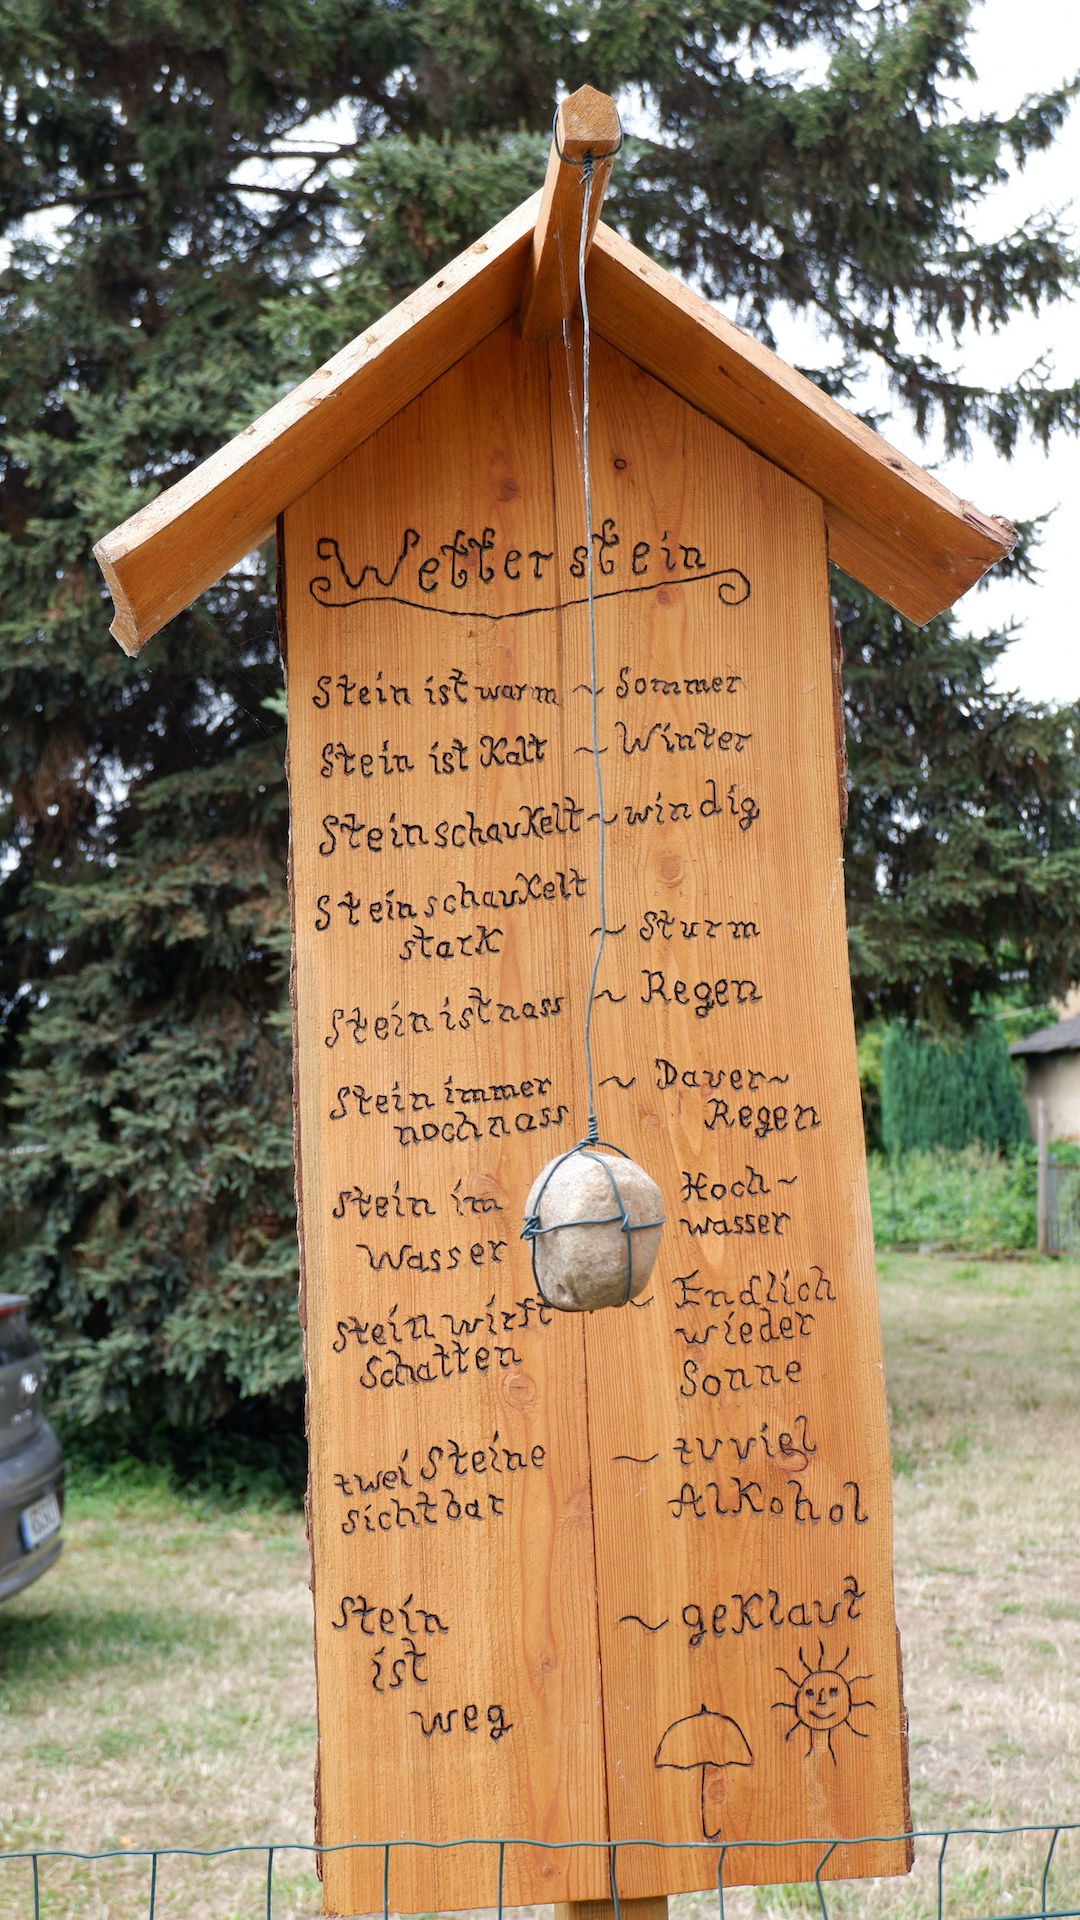 Wetterstein
Stein ist warm ~ Sommer
Stein ist Kalt ~ Winter
Stein schauKelt ~ windig
Stein schauKelt
starK ~ Sturm
Stein ist nass ~ Regen
Stein immer ~ Dauer~
noch nass Regen
Stein im Hoch~
Wasser wasser
Stein wirft ~ Endlich
Schatten wieder
Sonne
zwei Steine ~ zuviel
sichtbar AlKohol
Stein ~ geKlaut
ist
weg